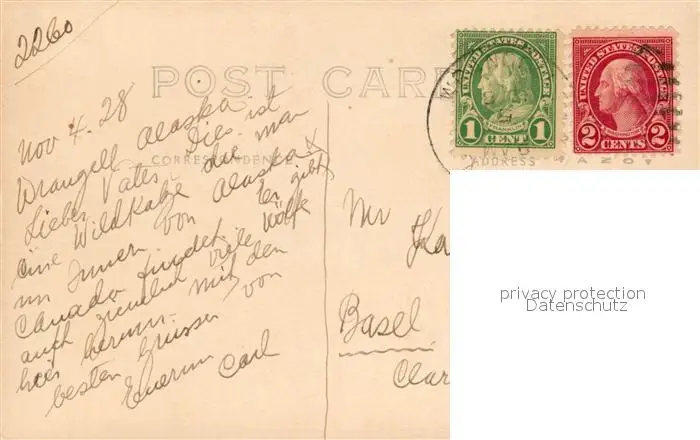 2260
POST CARD
Nov 4. 28
Wrangell Alaska.
Lieber Vater. Dies ist
eine Wildkatze die man
im Innern von Alaska &
Canada findet. Er gibt
auch ziemlich viele Wölfe
hier herum. Mit den
besten Grüssen von
Euerm Carl
CORRESPONDENCE
ADDRESS
AZO
UNITED STATES POSTAGE
FRANKLIN
1 CENT 1
UNITED STATES POSTAGE
2 CENTS 2
Mr
Basel
Clar
privacy protection
Datenschutz